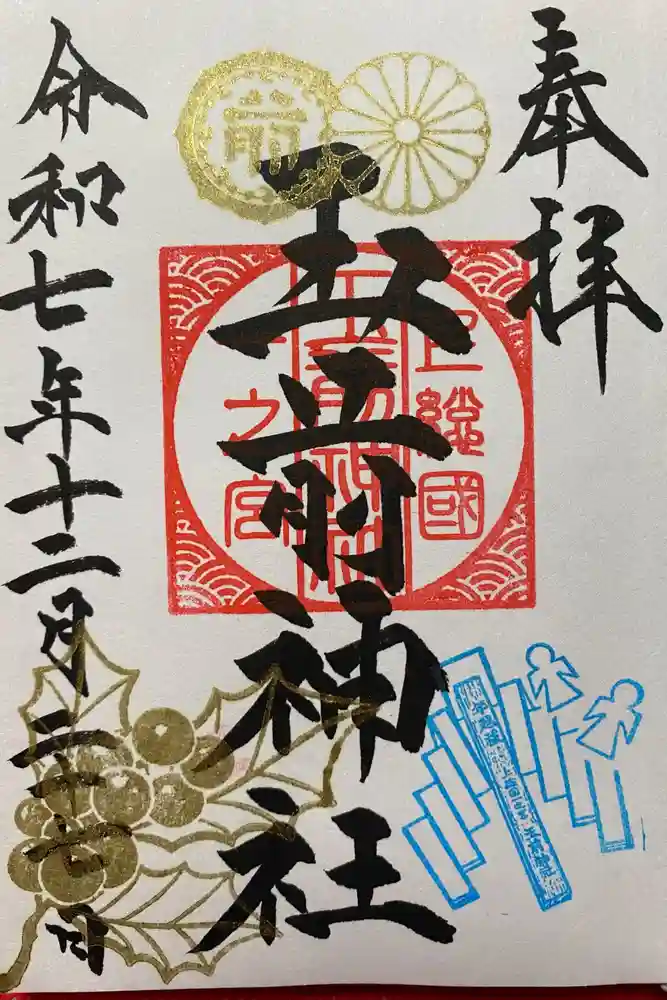 奉拝
上總國
玉前神社
一之宮
玉前神社
令和七年十二月二十七日
前